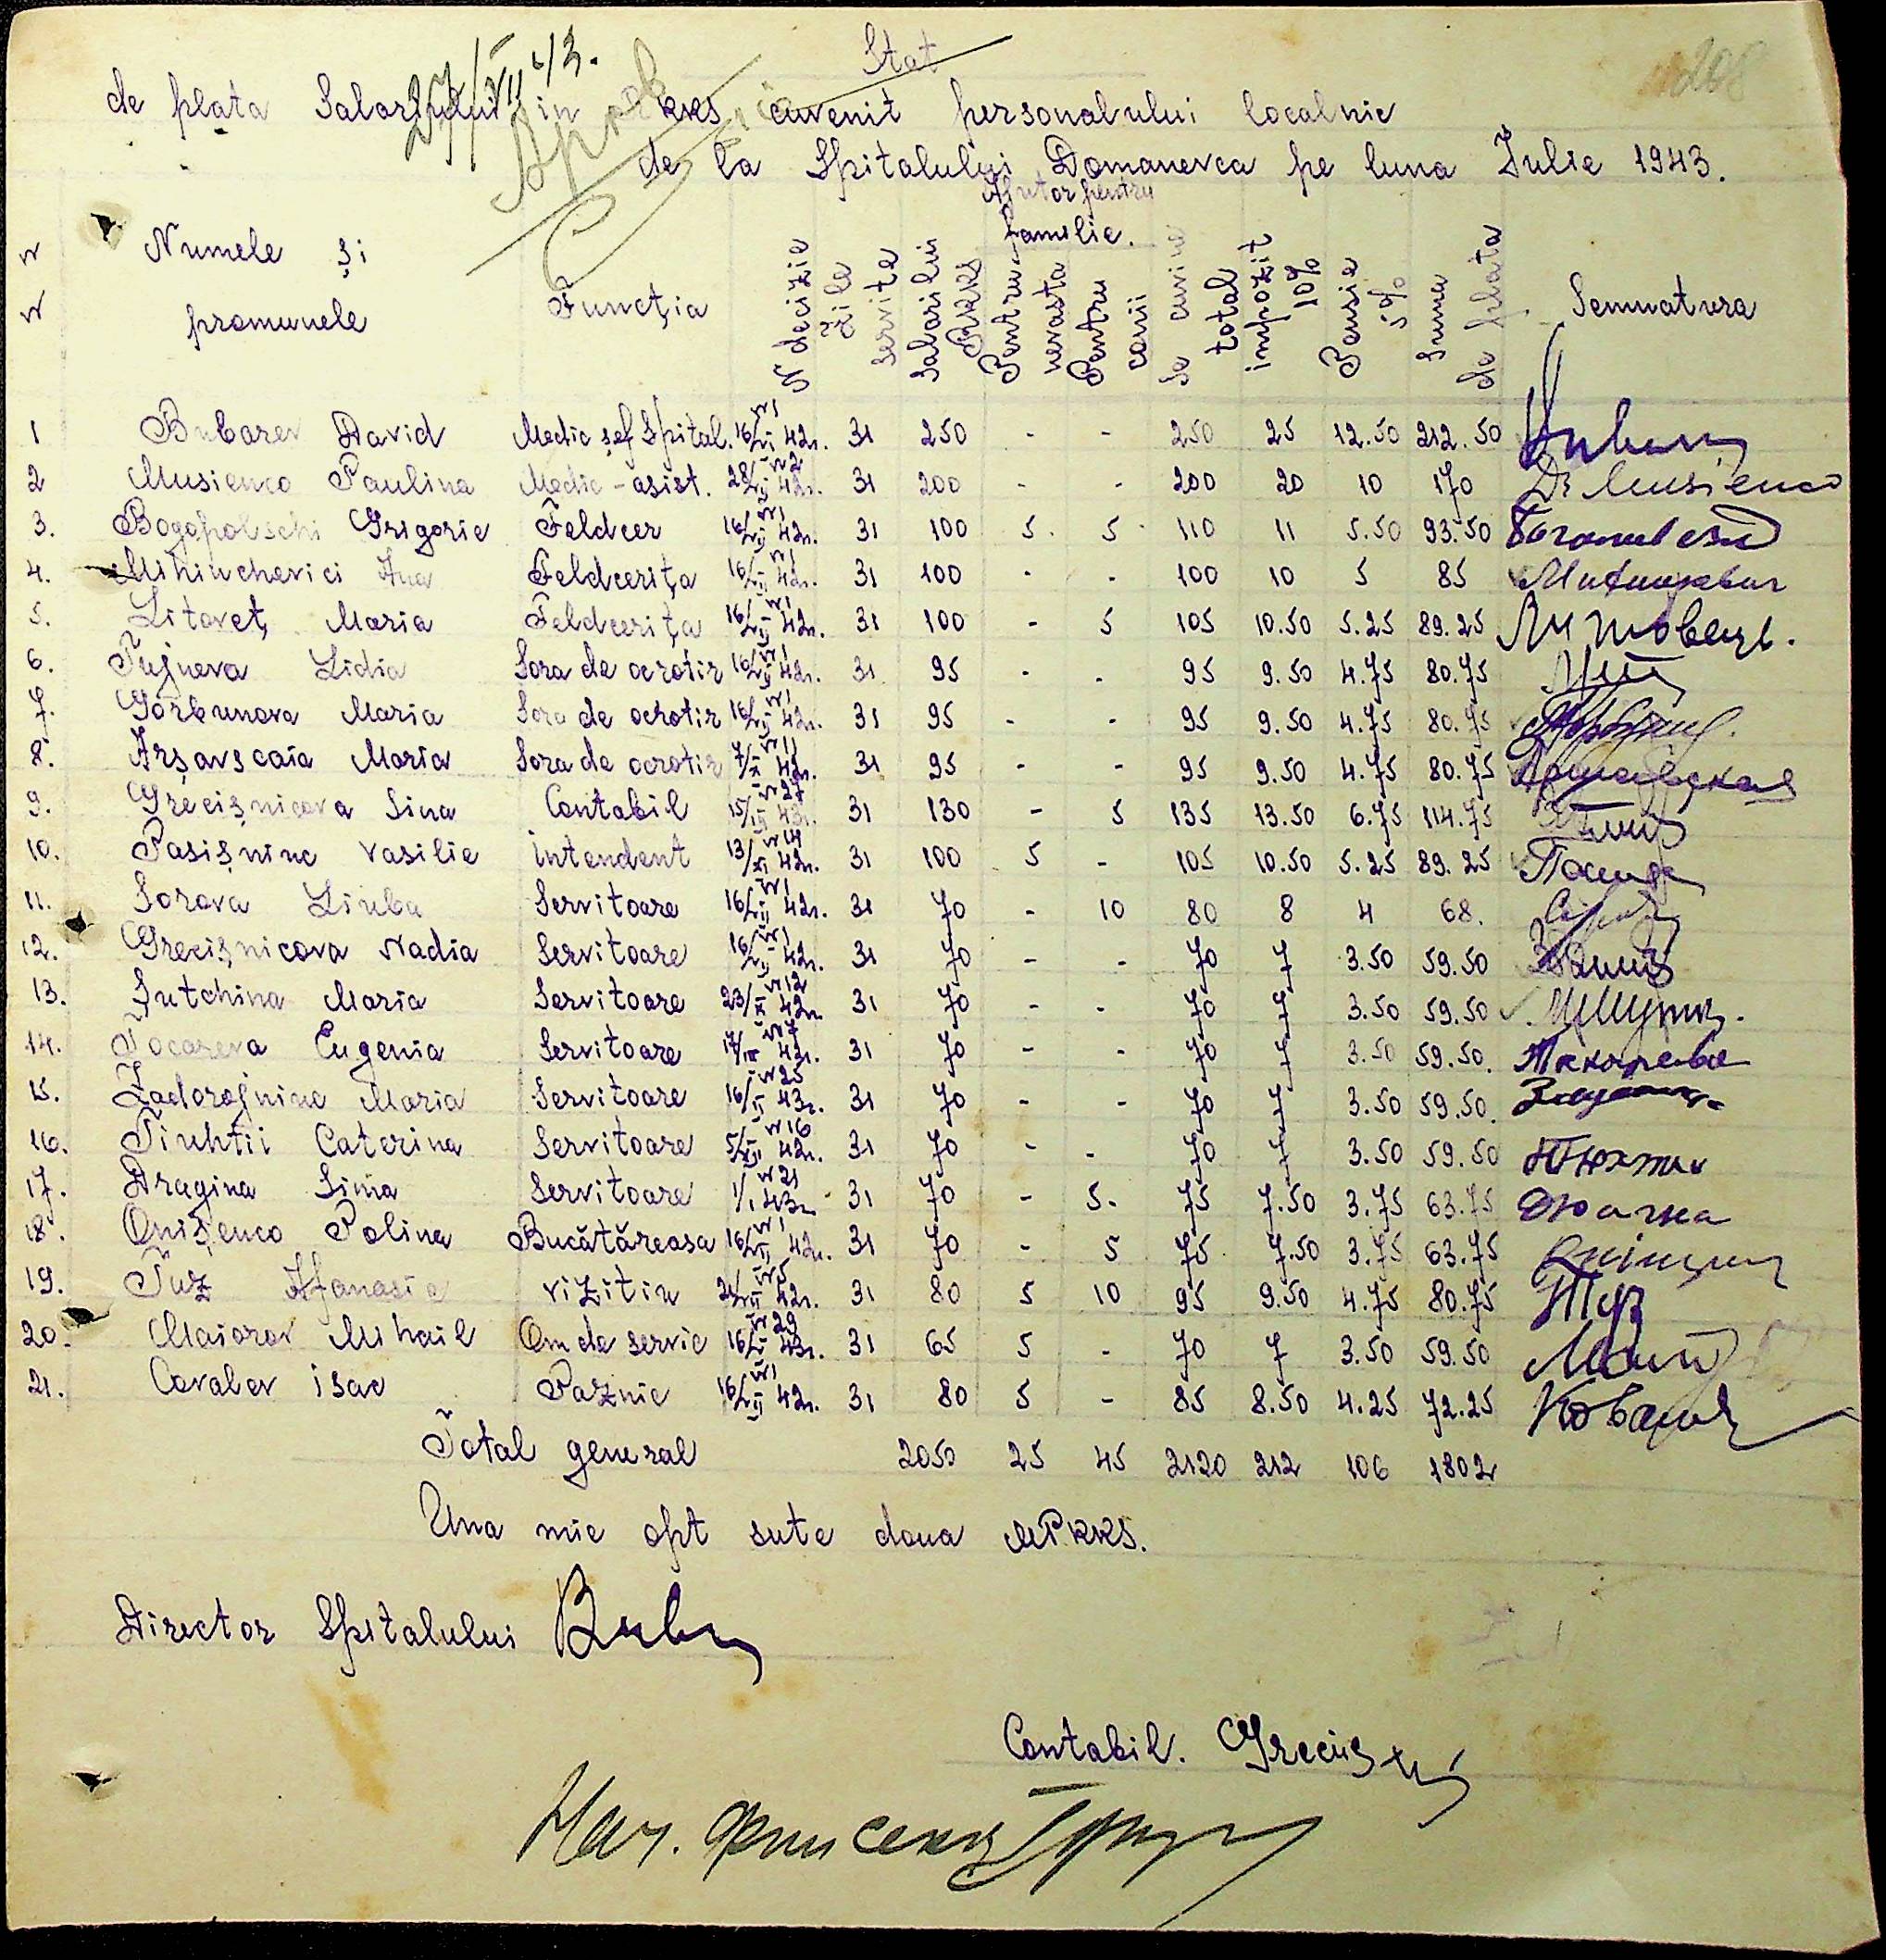 Stat
208
27/VII 43.
Aprob
de plata Salariului in RKKS cuvenit personalului localnic
de la Spitalului Domanevca pe luna Iulie 1943.
N N Numele și pronumele Funcția N decizia Zile servite Salariului RKKS Ajutor pentru familie. Pentru nevasta Pentru copii Se cuvine total impozit 10% Pensia 5% Suma de plata Semnatura
1 Bubarev David Medic șef Spital. N1 16/VII 42a. 31 250 - - 250 25 12.50 212.50
2 Musienco Paulina Medic-asist. N2 28/VII 42a. 31 200 - - 200 20 10 170 Dr Musienco
3. Bogopolschi Grigorie Feldcer N1 16/VII 42a. 31 100 5. 5 110 11 5.50 93.50
4. Mihinchevici Ana Feldcerița N1 16/VII 42a. 31 100 - - 100 10 5 85 Михинкевич
5. Litoveț Maria Feldcerița N1 16/VII 42a. 31 100 - 5 105 10.50 5.25 89.25 Литовець.
6. Pujneva Lidia Sora de ocrotir N1 16/VII 42a. 31 95 - - 95 9.50 4.75 80.75
7. Gorbunova Maria Sora de ocrotir N1 16/VII 42a. 31 95 - - 95 9.50 4.75 80.75
8. Arșavscaia Maria Sora de ocrotir N11 7/X 42a. 31 95 - - 95 9.50 4.75 80.75
9. Grecișnicova Sina Contabil N27 15/III 43a. 31 130 - 5 135 13.50 6.75 114.75
10. Pasișninc Vasilie Intendent N14 13/XI 42a. 31 100 5 - 105 10.50 5.25 89.25
11. Sorova Liuba Servitoare N1 16/VII 42a. 31 70 - 10 80 8 4 68.
12. Grecișnicova Nadia Servitoare N1 16/VII 42a. 31 70 - - 70 7 3.50 59.50
13. Șutchina Maria Servitoare N12 23/X 42a. 31 70 - - 70 7 3.50 59.50
14. Tocareva Eugenia Servitoare N7 17/IX 42a. 31 70 - - 70 7 3.50 59.50. Токарева
15. Zadorojnina Maria Servitoare N25 16/II 43a. 31 70 - - 70 7 3.50 59.50.
16. Tiuhtii Caterina Servitoare N16 5/XII 42a. 31 70 - - 70 7 3.50 59.50 Тюхтий
17. Dragina Sima Servitoare N21 1/I 43a 31 70 - 5. 75 7.50 3.75 63.75
18. Onișenco Polina Bucătăreasa N1 16/VII 42a. 31 70 - 5 75 7.50 3.75 63.75
19. Tuz Afanasie Vizitiu N5 21/VII 42a. 31 80 5 10 95 9.50 4.75 80.75 Туз
20. Maiorov Mihail Om de servic N29 16/V 43a. 31 65 5 - 70 7 3.50 59.50
21. Covalev Isac Paznic N1 16/VII 42a. 31 80 5 - 85 8.50 4.25 72.25 Ковалев
Total general 2050 25 45 2120 212 106 1802
Una mie opt sute doua RKKS.
Director Spitalului
Contabil.
Нач. Фин секц